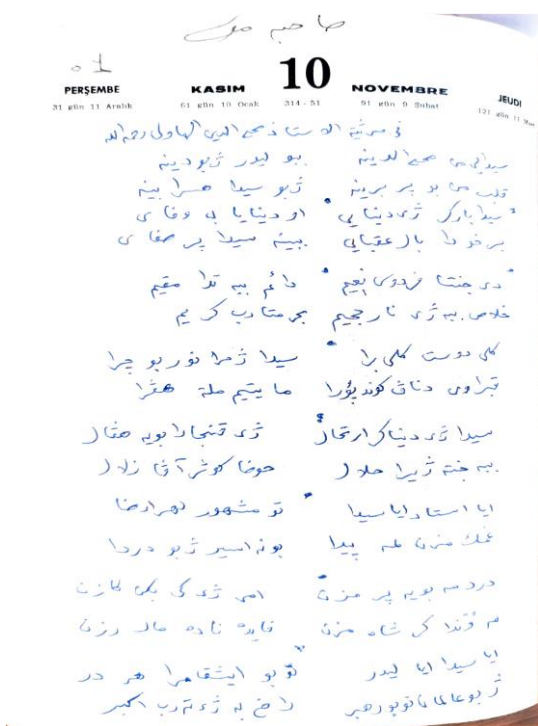 صاحبه مك
10
PERŞEMBE KASIM NOVEMBRE JEUDI
31 gün 11 Aralık 61 gün 10 Ocak 314 - 51 91 gün 9 Şubat 121 gün 11
في مرثية الاستاذ محي الدين الهاولى رحمه الله
سيدايى من محي الدينه ببو ليدر ژبو دينه
قلب من بو پر برينه ژبو سيدا هسرا بينه
سيدا باركر ژى دنيايى او دنيايا بى وفاى
برخودا بال عقبايى ببينه سيدا پر صفاى
دى جنتا فردوس نعيم دائم ببه تدا مقيم
خلاص ببه ژى نار جحيم بحرمتا رب كريم
كلى دوست كلى برا سيدا ژمرا نور بو چرا
قبراوى دناڤ كوند ما يتيم مله هڤرا
سيدا ژى دنياكر ارتحال ژى بويه هڤال
ببه جنه ژيرا حلال حوضا كوثر آڤا زلال
ايا استاد ايا سيدا تو مشهور
غمك مزن مه پيدا بونه اسير ژبو دردا
درد مه بويه پر مزن امر ژى
مه وندا كر شاه مزن فايده ناده مال رزن
ايا سيدا ايا ليدر تو بو مرا هر در
ژبو عالما تو بو رهبر راضى به ژ ته رب اكبر